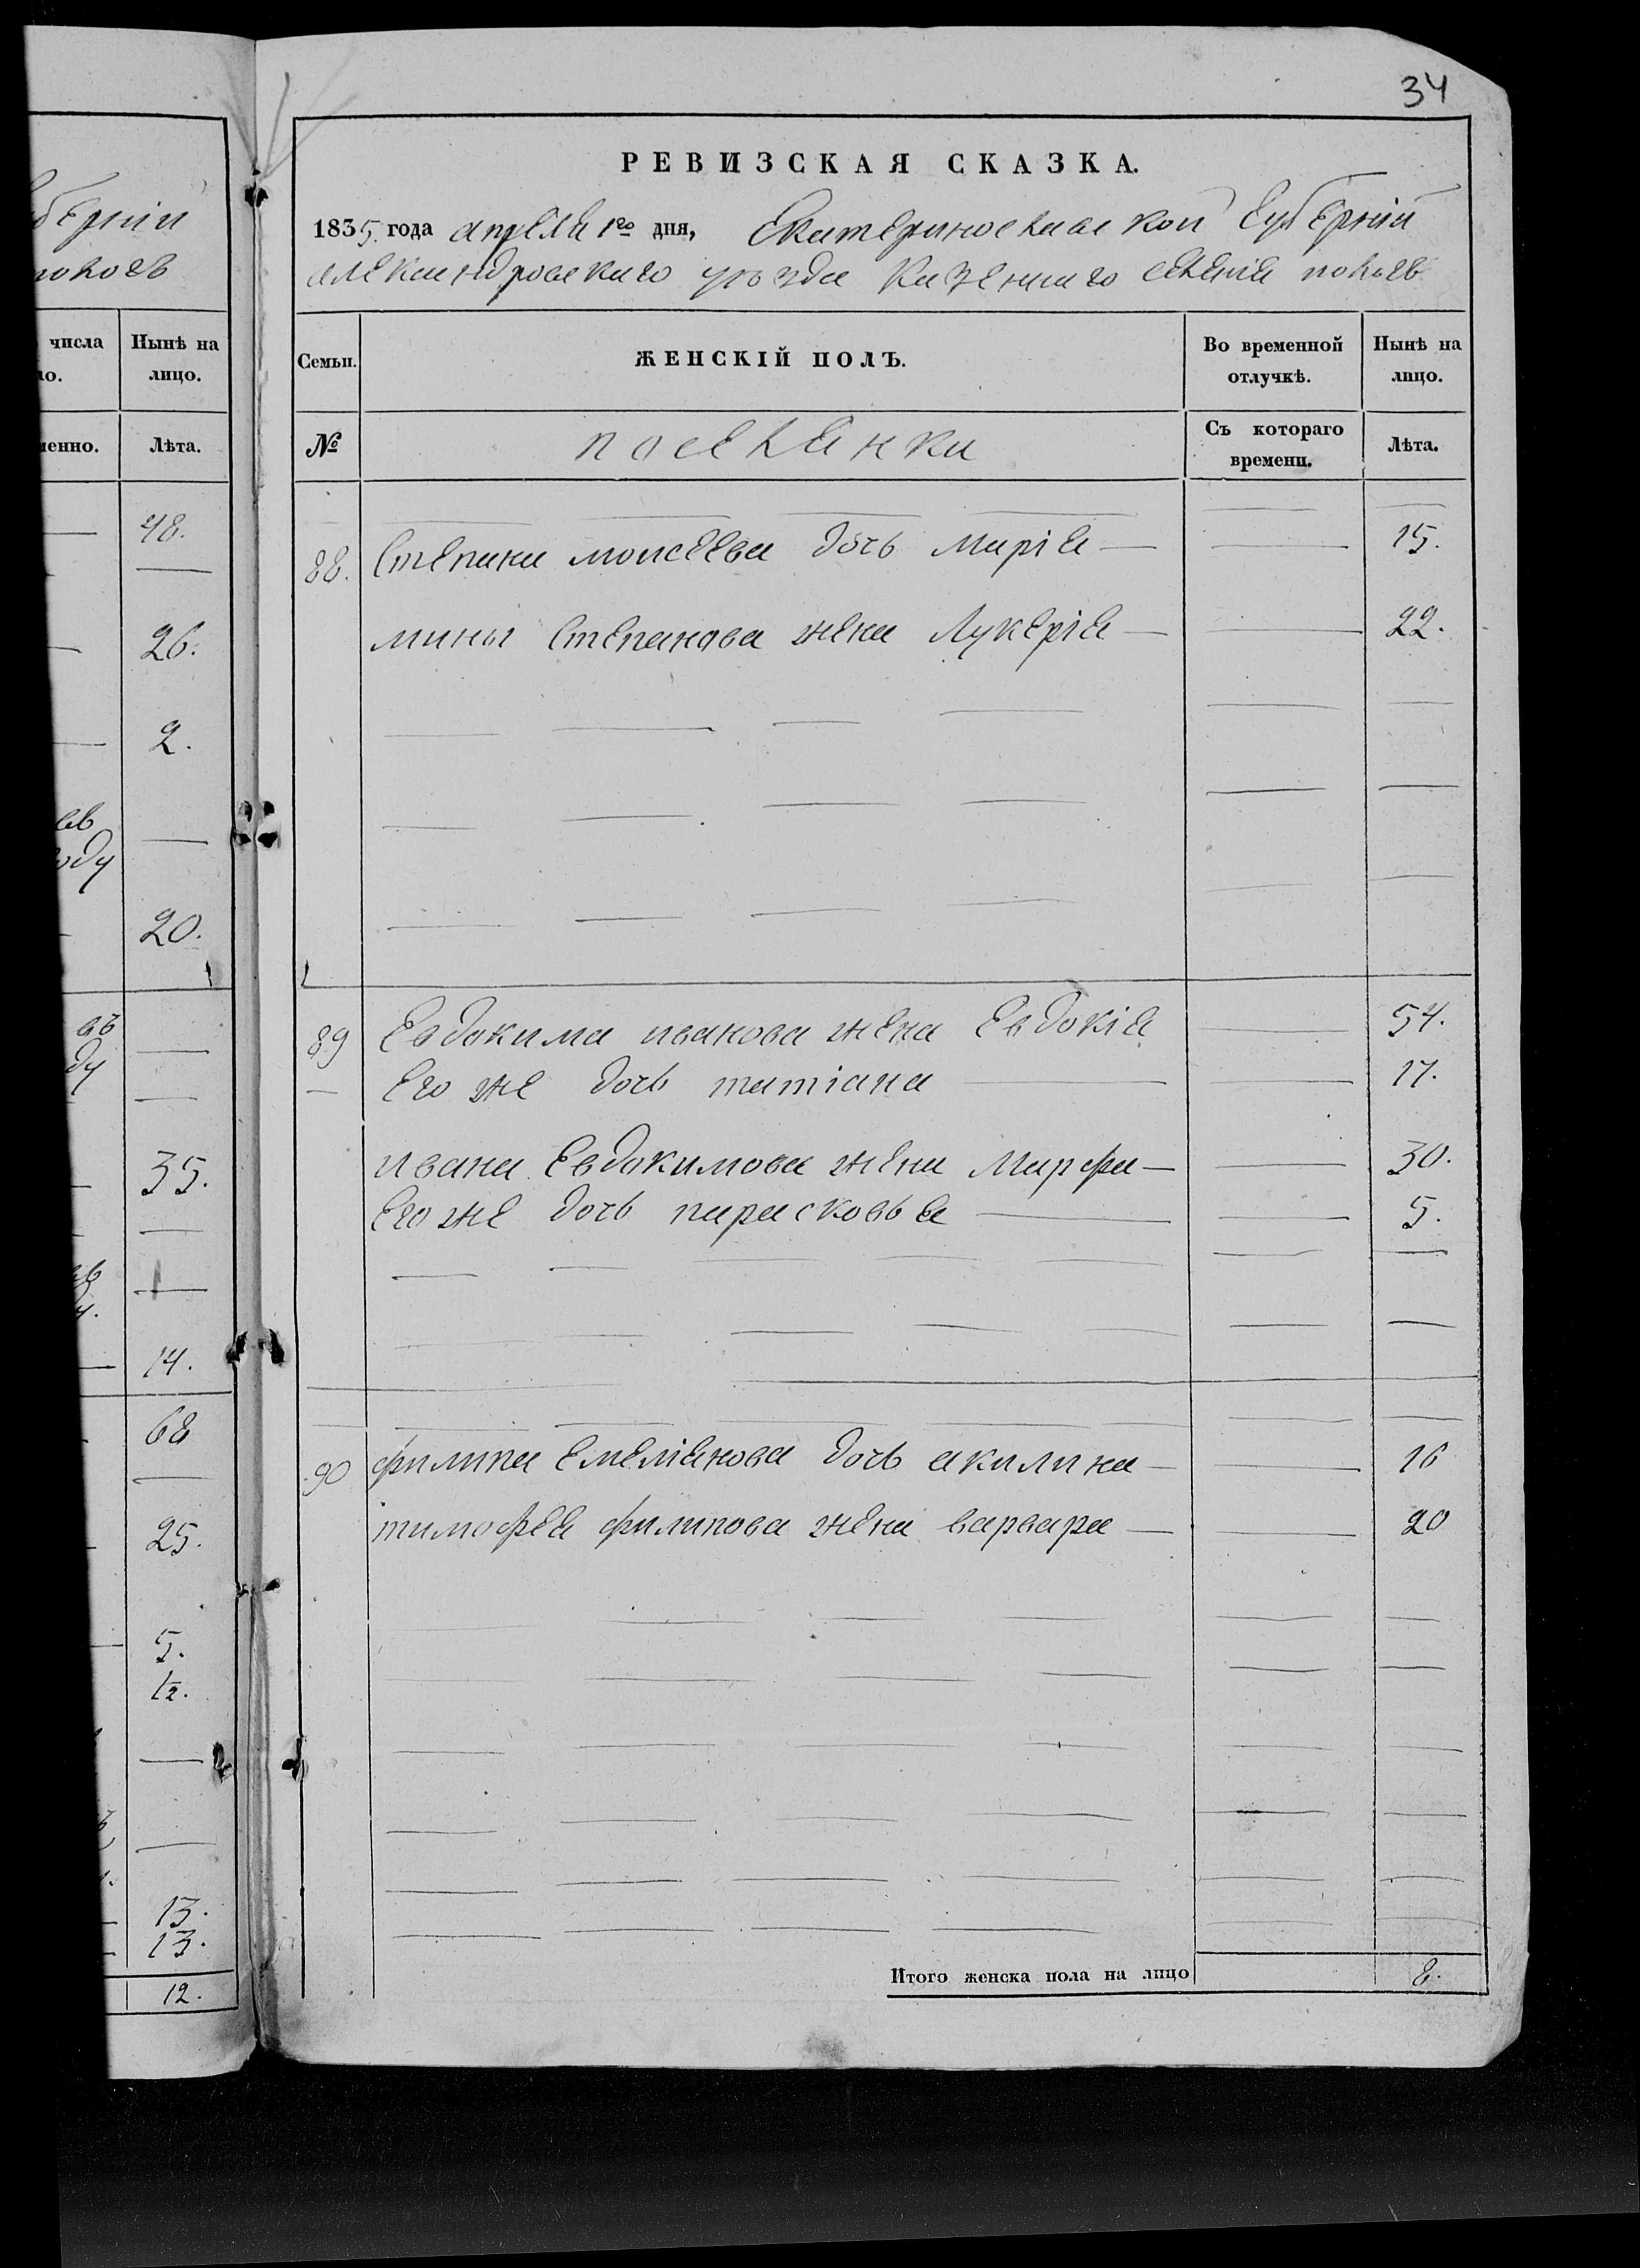 34
РЕВИЗСКАЯ СКАЗКА.
1835. года апреля 1го дня, Екатеринославской Губернии
александровского уезда Казенного селения
Семьи.
ЖЕНСКІЙ ПОЛЪ.
Во временной отлучкѣ.
Нынѣ на лицо.
№
поселянки
Съ котораго времени.
Лѣта.
88. Степана моисеева дочь Марія — — 15.
мины Степанова жена Лукерія — — 22.
89 Евдокима иванова жена Евдокія — 54.
— Его же дочь татіана — — 17.
ивана Евдокимова жена Марфа — — 30.
Его же дочь парасковья — — 5.
90 филипа Емеліанова дочь акилина — — 16
тимофея филипова жена варвара — — 20
Итого женска пола на лицо 8.
числа
Нынѣ на
лицо.
Лѣта.
48.
26.
2.
20.
35.
14.
68
25.
5.
½.
13.
13.
12.